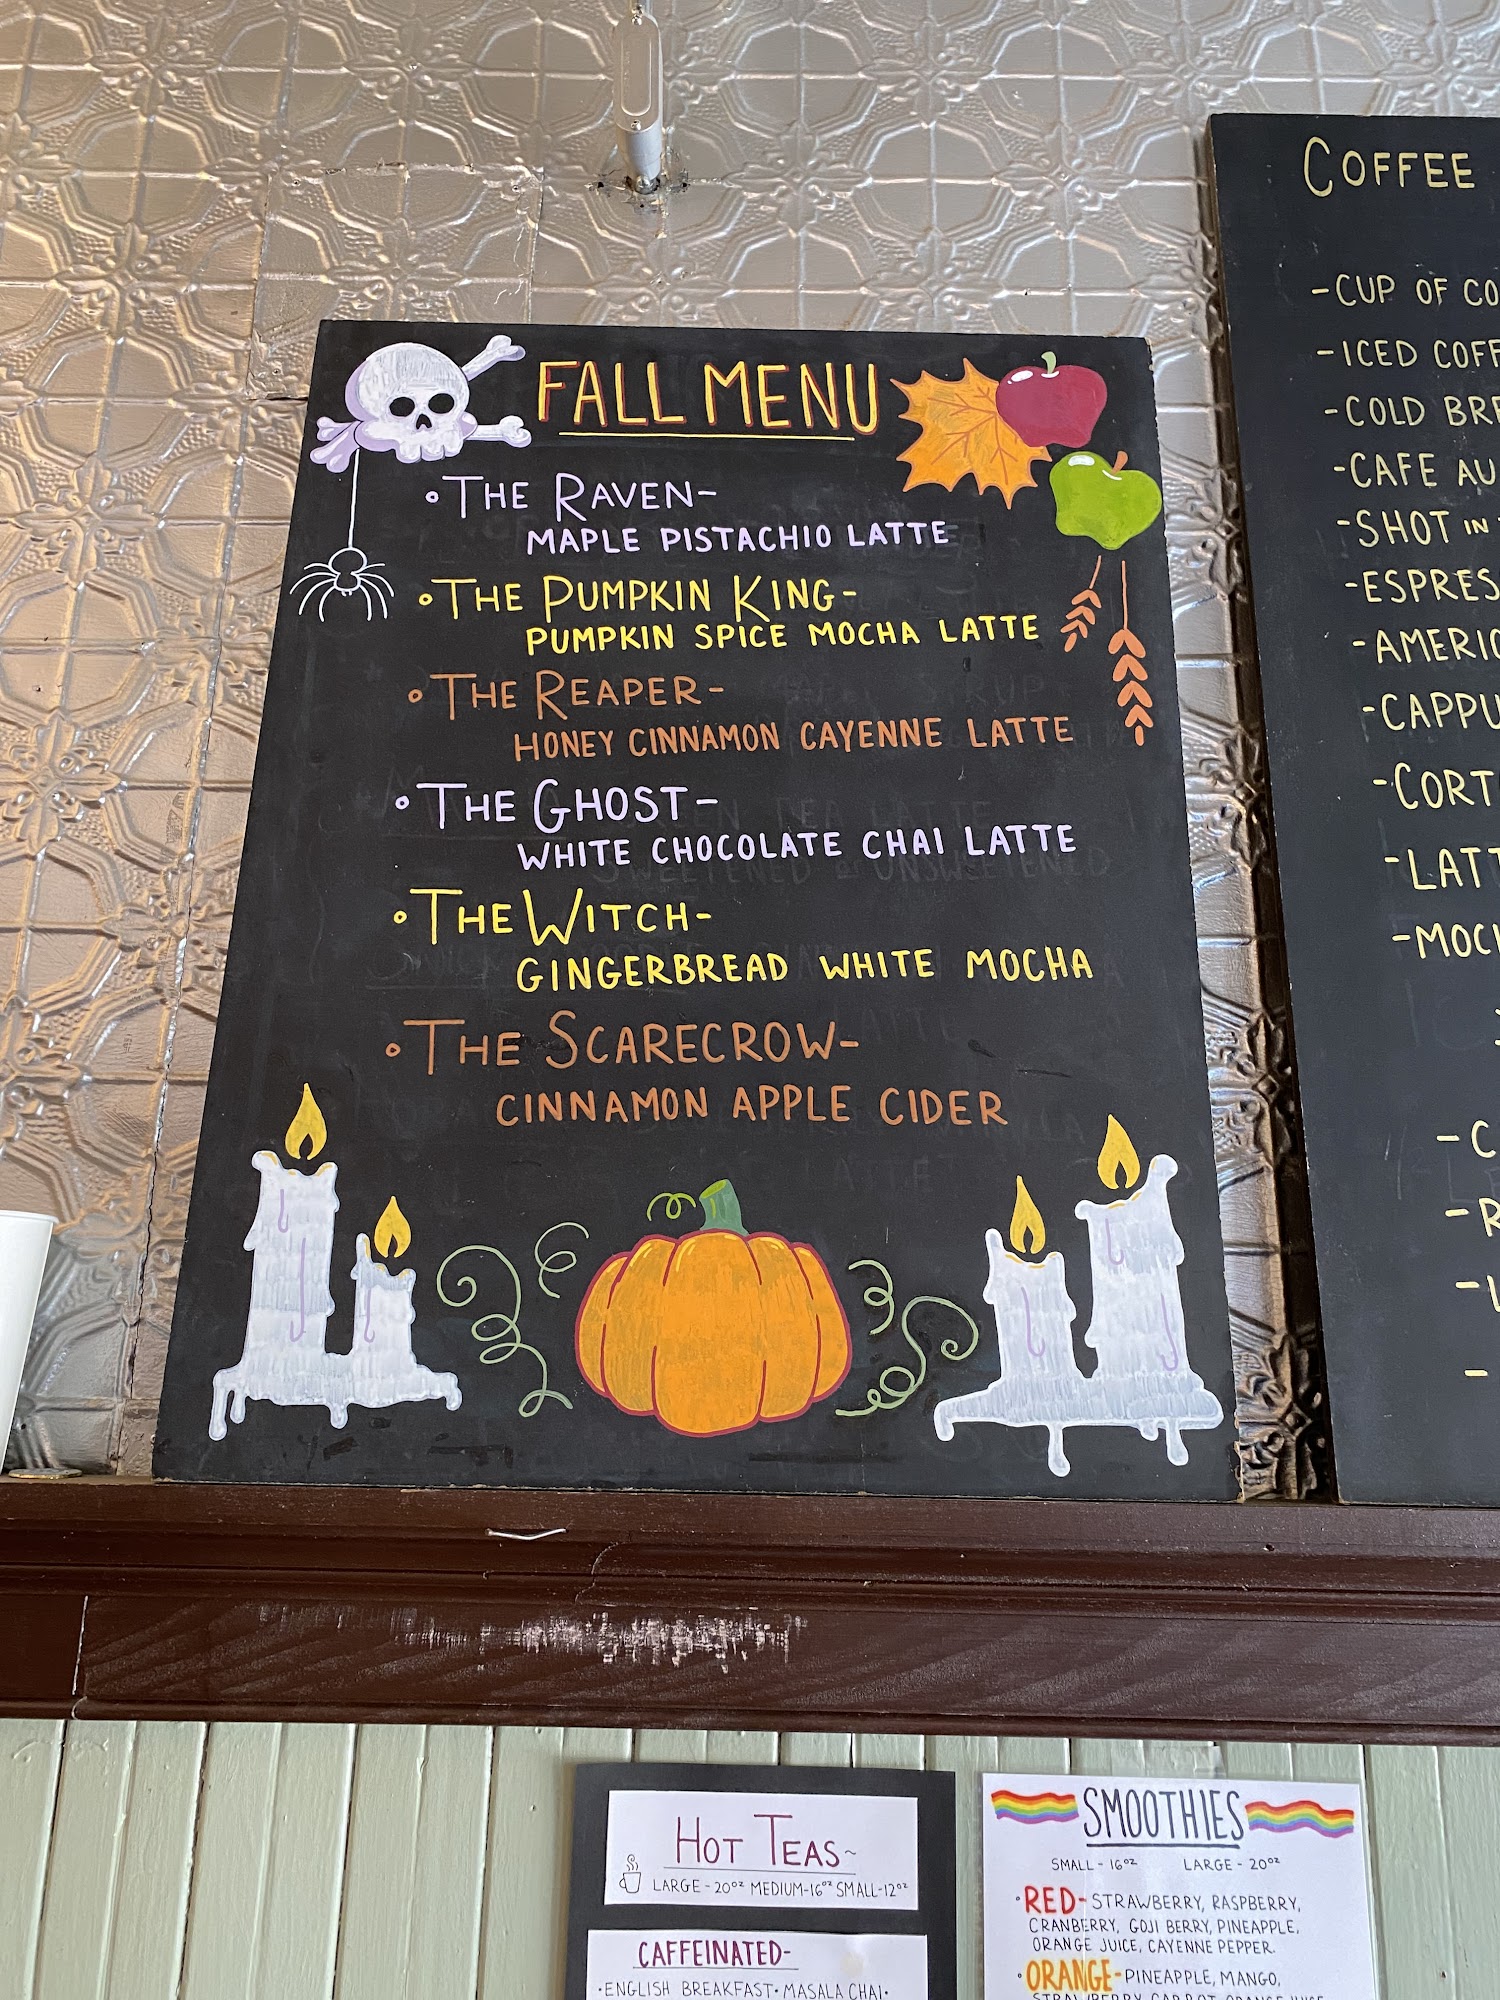 FALL MENU
•THE RAVEN-
MAPLE PISTACHIO LATTE
•THE PUMPKIN KING-
PUMPKIN SPICE MOCHA LATTE
•THE REAPER-
HONEY CINNAMON CAYENNE LATTE
•THE GHOST-
WHITE CHOCOLATE CHAI LATTE
•THE WITCH-
GINGERBREAD WHITE MOCHA
•THE SCARECROW-
CINNAMON APPLE CIDER
COFFEE
-CUP OF
-ICED
-COLD
-CAFE
-SHOT IN
HOT TEAS~
LARGE-20oz MEDIUM-16oz SMALL-12oz
CAFFEINATED-
•ENGLISH BREAKFAST•MASALA CHAI•
SMOOTHIES
SMALL-16oz LARGE-20oz
•RED-STRAWBERRY, RASPBERRY,
CRANBERRY, GOJI BERRY, PINEAPPLE,
ORANGE JUICE, CAYENNE PEPPER.
•ORANGE-PINEAPPLE, MANGO,